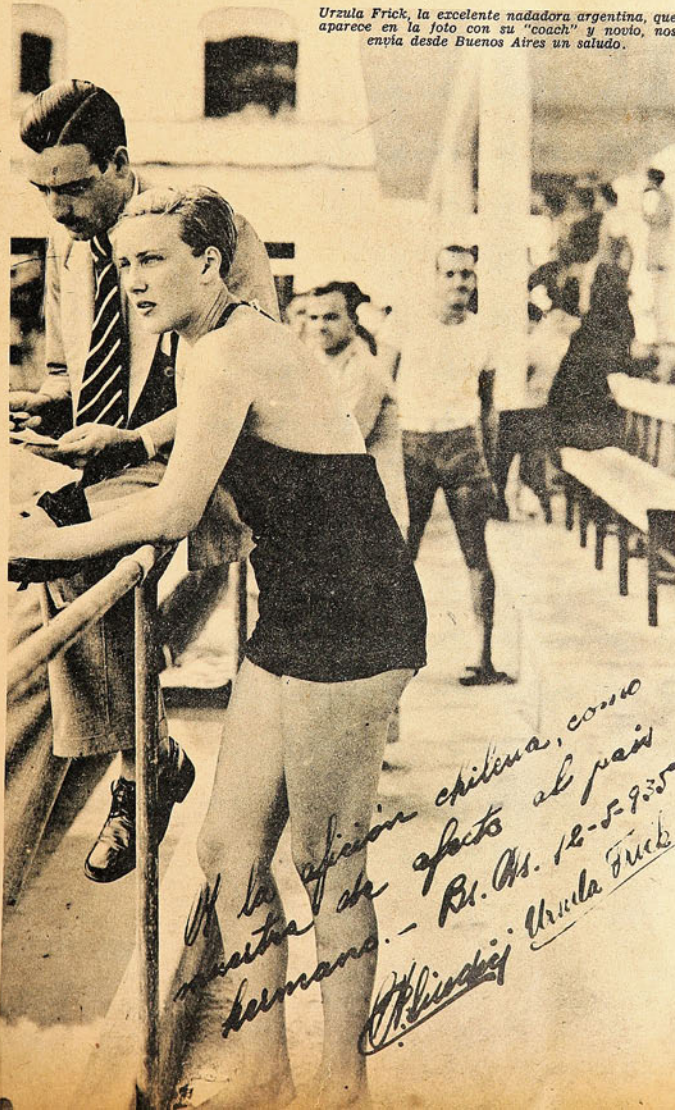 Urzula Frick, la excelente nadadora argentina, que
aparece en la foto con su "coach" y novio, nos
envía desde Buenos Aires un saludo.
A la afición chilena, como
muestra de afecto al país
hermano.- Bs. As. 12-5-935
Ursula Frick